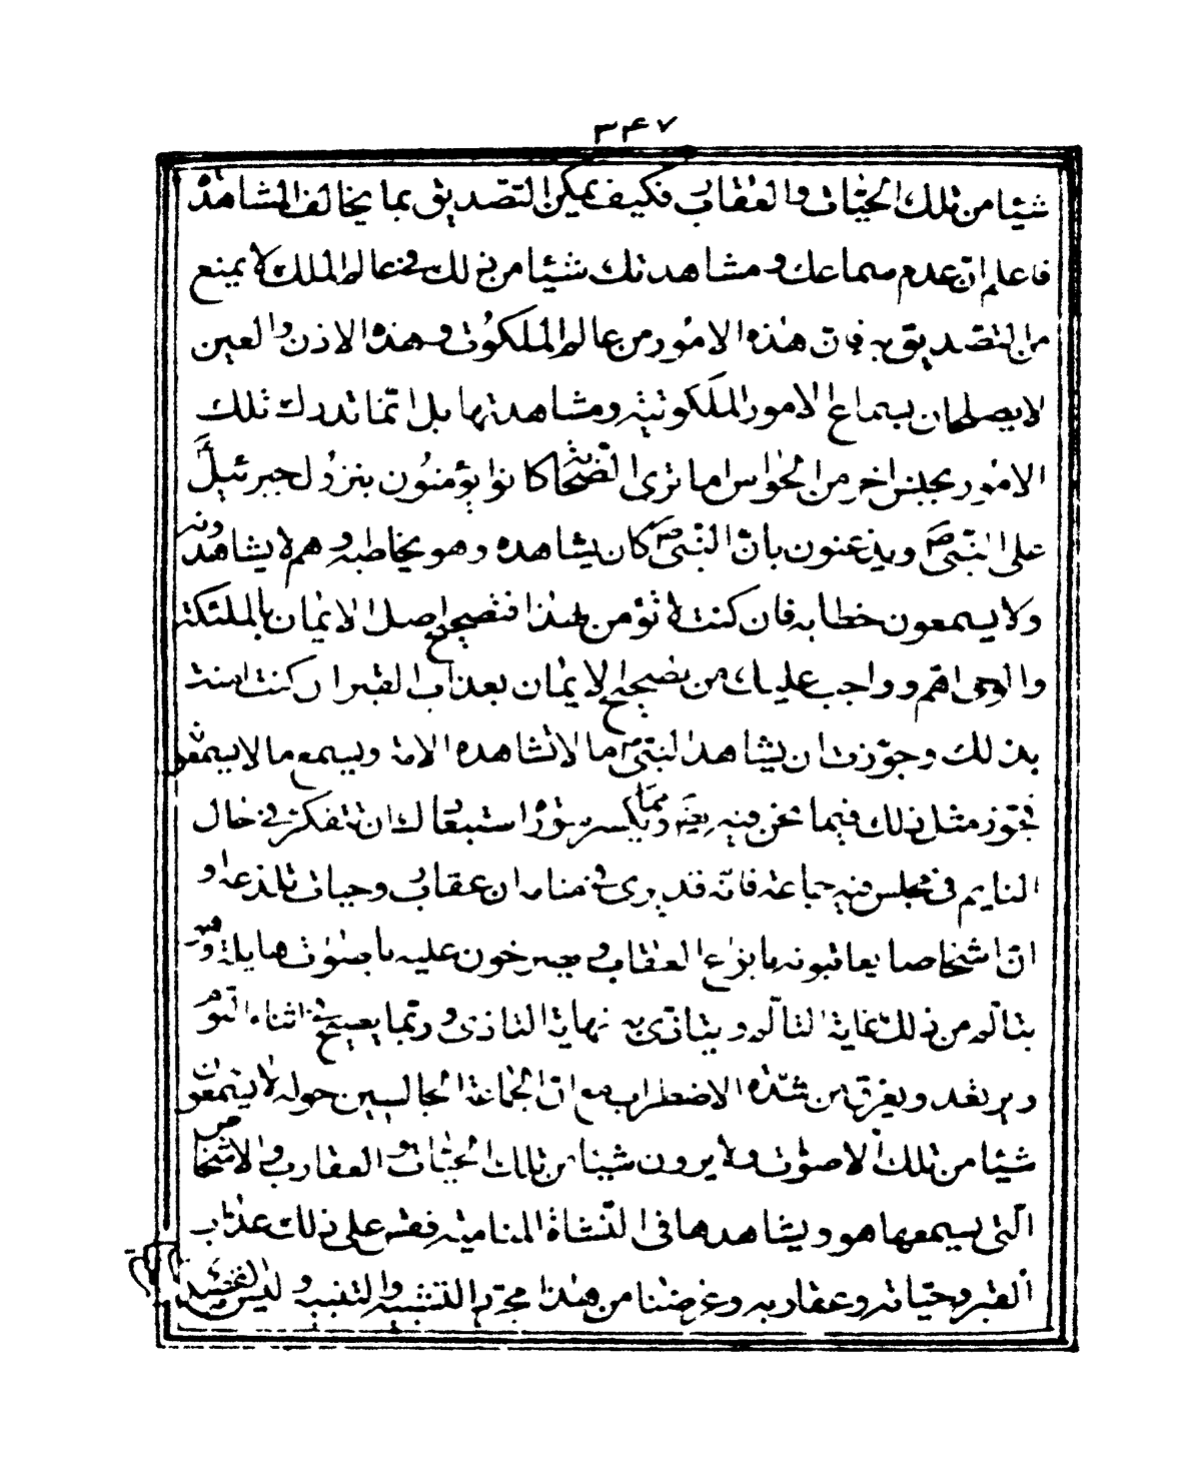 ۳۴۷
شيئا من تلك الحيات والعقارب فكيف يمكن التصديق بما يخالف المشاهدة
فاعلم ان عدم سماعك ومشاهدتك شيئا من ذلك في عالم الملك لا يمنع
من التصديق به فان هذه الامور من عالم الملكوت وهذه الاذن والعين
لا يصلحان لسماع الامور الملكوتية ومشاهدتها بل انما تدرك تلك
الامور بجنس اخر من الحواس اما ترى الصحابة كانوا يؤمنون بنزول جبرئيل
على النبي ص ويذعنون بان النبي ص كان يشاهده وهو يخاطبه وهم لا يشاهدونه
ولا يسمعون خطابه فان كنت لا تؤمن بهذا فتصحيح اصل الايمان بالملئكة
والوحى اهم وواجب عليك من تصحيح الايمان بعذاب القبر ان كنت امنت
بذلك وجوزت ان يشاهد النبي ص ما لا تشاهده الامة ويسمع ما لا يسمعون
فجوز مثل ذلك فيما نحن فيه ايضا ومما يكسر سورة استبعادك ان تتفكر في حال
النايم في مجلس فيه جماعة فانه قد يرى في منامه ان عقارب وحيات تلذعه او
ان اشخاصا يعاقبونه بانواع العقاب ويصرخون عليه باصوات هايلة وهو
يتالم من ذلك غاية التالم ويتاذى به نهاية التاذى وربما يصيح في اثناء النوم
ويرتعد ويعرق من شدة الاضطراب مع ان الجماعة الجالسين حوله لا يسمعون
شيئا من تلك الاصوات ولا يرون شيئا من تلك الحيات والعقارب والاشخاص
التى يسمعها هو ويشاهدها في النشأة المنامية فقس على ذلك عذاب
القبر وحياته وعقاربه وغرضنا من هذا مجرد التشبيه والتنبيه وليس القصد